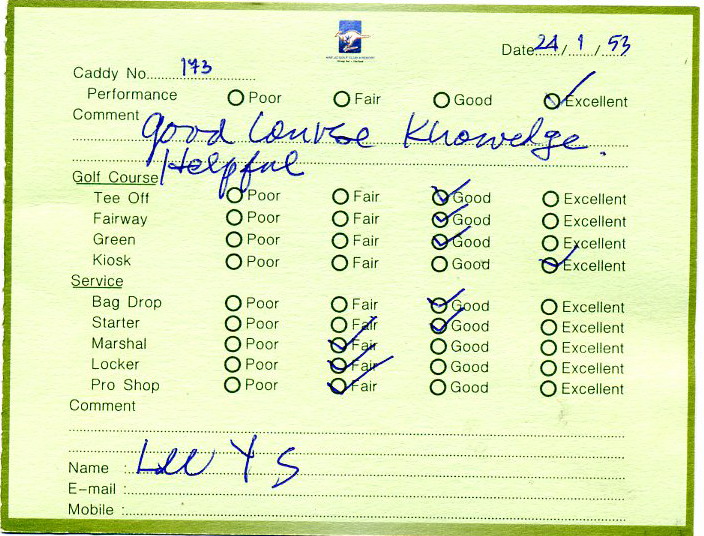 Date 24 / 1 / 53
Caddy No. 173
Performance Poor Fair Good Excellent
Comment good Course Knowledge.
Helpful
Golf Course
Tee Off Poor Fair Good Excellent
Fairway Poor Fair Good Excellent
Green Poor Fair Good Excellent
Kiosk Poor Fair Good Excellent
Service
Bag Drop Poor Fair Good Excellent
Starter Poor Fair Good Excellent
Marshal Poor Fair Good Excellent
Locker Poor Fair Good Excellent
Pro Shop Poor Fair Good Excellent
Comment
Name : Lee Y S
E-mail :
Mobile :